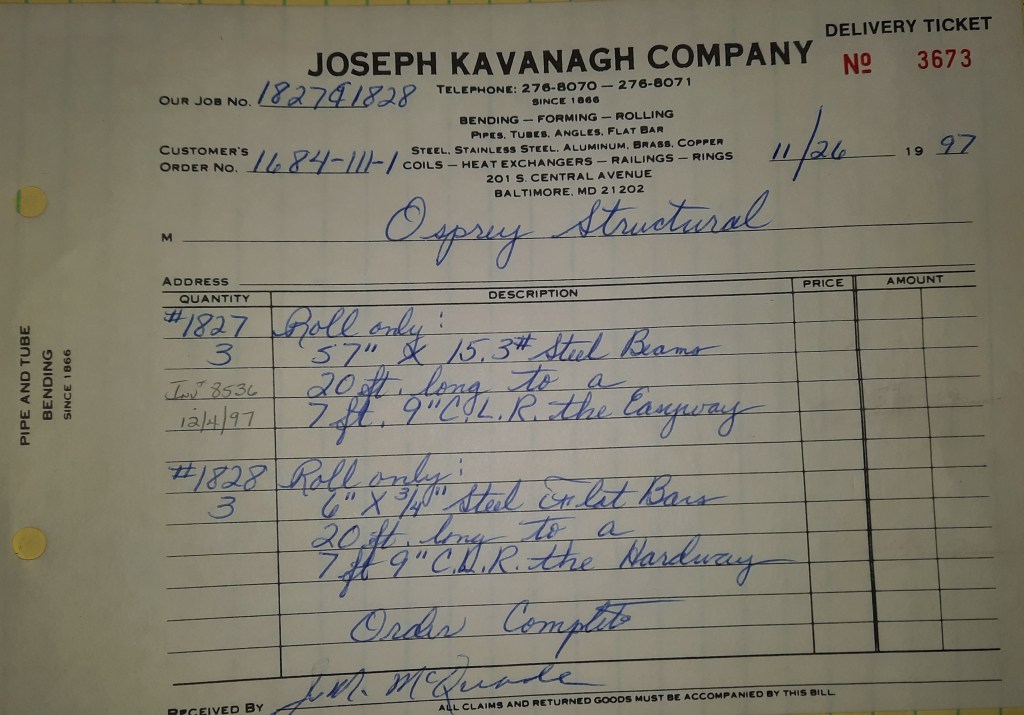 DELIVERY TICKET
JOSEPH KAVANAGH COMPANY
Nº 3673
OUR JOB NO. 1827 & 1828
TELEPHONE: 276-8070 — 276-8071
SINCE 1866
BENDING — FORMING — ROLLING
PIPES, TUBES, ANGLES, FLAT BAR
CUSTOMER'S
ORDER NO. 1684-111-1
STEEL, STAINLESS STEEL, ALUMINUM, BRASS, COPPER
COILS — HEAT EXCHANGERS — RAILINGS — RINGS
11/26 19 97
201 S. CENTRAL AVENUE
BALTIMORE, MD 21202
M Osprey Structural
ADDRESS
QUANTITY DESCRIPTION PRICE AMOUNT
#1827 Roll only:
3 S7" X 15.3# Steel Beams
Inv 8536 20 ft. long to a
12/4/97 7 ft. 9" C.L.R. the Easyway
#1828 Roll only:
3 6" X 3/4" Steel Flat Bars
20 ft. long to a
7 ft 9" C.L.R. the Hardway
Order Complete
RECEIVED BY McQuade
ALL CLAIMS AND RETURNED GOODS MUST BE ACCOMPANIED BY THIS BILL
PIPE AND TUBE
BENDING
SINCE 1866